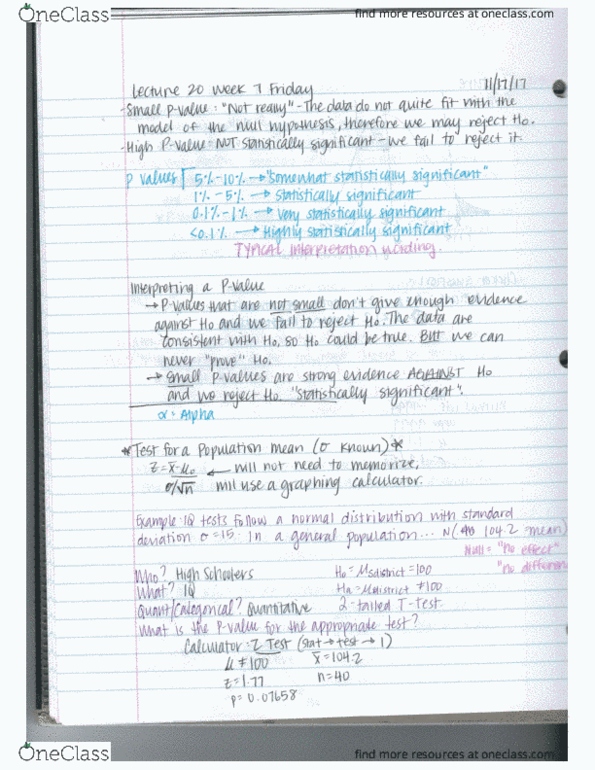 OneClass
find more resources at oneclass.com
Lecture 20 Week 7 Friday 11/17/17
-Small P-value: "Not really" - The data do not quite fit with the
model of the null hypothesis, therefore we may reject Ho.
-High P-Value = NOT statistically significant - we fail to reject it.
P values 5% - 10% → "Somewhat statistically significant"
1% - 5% → Statistically significant
0.1% - 1% → Very statistically significant
<0.1% → Highly statistically significant
TYPICAL Interpretation wording.
Interpreting a P-Value
→ P-values that are not small don't give enough evidence
against Ho and we fail to reject Ho. The data are
consistent with Ho, so Ho could be true. But we can
never "prove" Ho.
→ Small P-values are strong evidence AGAINST Ho
and we reject Ho. "Statistically significant".
α = Alpha
*Test for a Population mean (σ known)*
z = x̄-μo ← will not need to memorize,
σ/√n will use a graphing calculator.
Example: IQ tests follow a normal distribution with standard
deviation σ=15. In a general population... N( 104.2 mean)
Null = "no effect"
"no differen
Who? High Schoolers Ho = μsdistrict = 100
What? IQ Ha = μdistrict ≠ 100
Quant/Categorical? Quantitative 2-tailed T-test
What is the P-value for the appropriate test?
Calculator: Z Test (stat → test → 1)
μ ≠ 100 x̄ = 104.2
z = 1.77 n = 40
p = 0.07658
OneClass
find more resources at oneclass.com